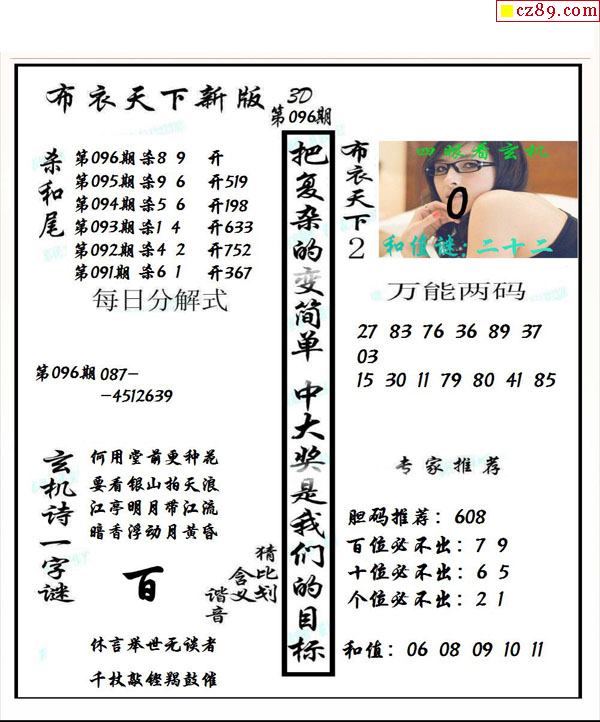 cz89.com
布衣天下新版 3D
第096期
杀和尾
第096期杀8 9 开
第095期杀9 6 开519
第094期杀5 6 开198
第093期杀1 4 开633
第092期杀4 2 开752
第091期杀6 1 开367
每日分解式
第096期087-
-4512639
玄机诗一字谜
何用堂前更种花
要看银山拍天浪
江亭明月带江流
暗香浮动月黄昏
百
猜比划
含义
谐音
休言举世无谈者
千杖敲铿羯鼓催
把复杂的变简单 中大奖是我们的目标
布衣天下2
四眼看玄机
0
和值谜:二十二
万能两码
27 83 76 36 89 37
03
15 30 11 79 80 41 85
专家推荐
胆码推荐：608
百位必不出：7 9
十位必不出：6 5
个位必不出：2 1
和值：06 08 09 10 11